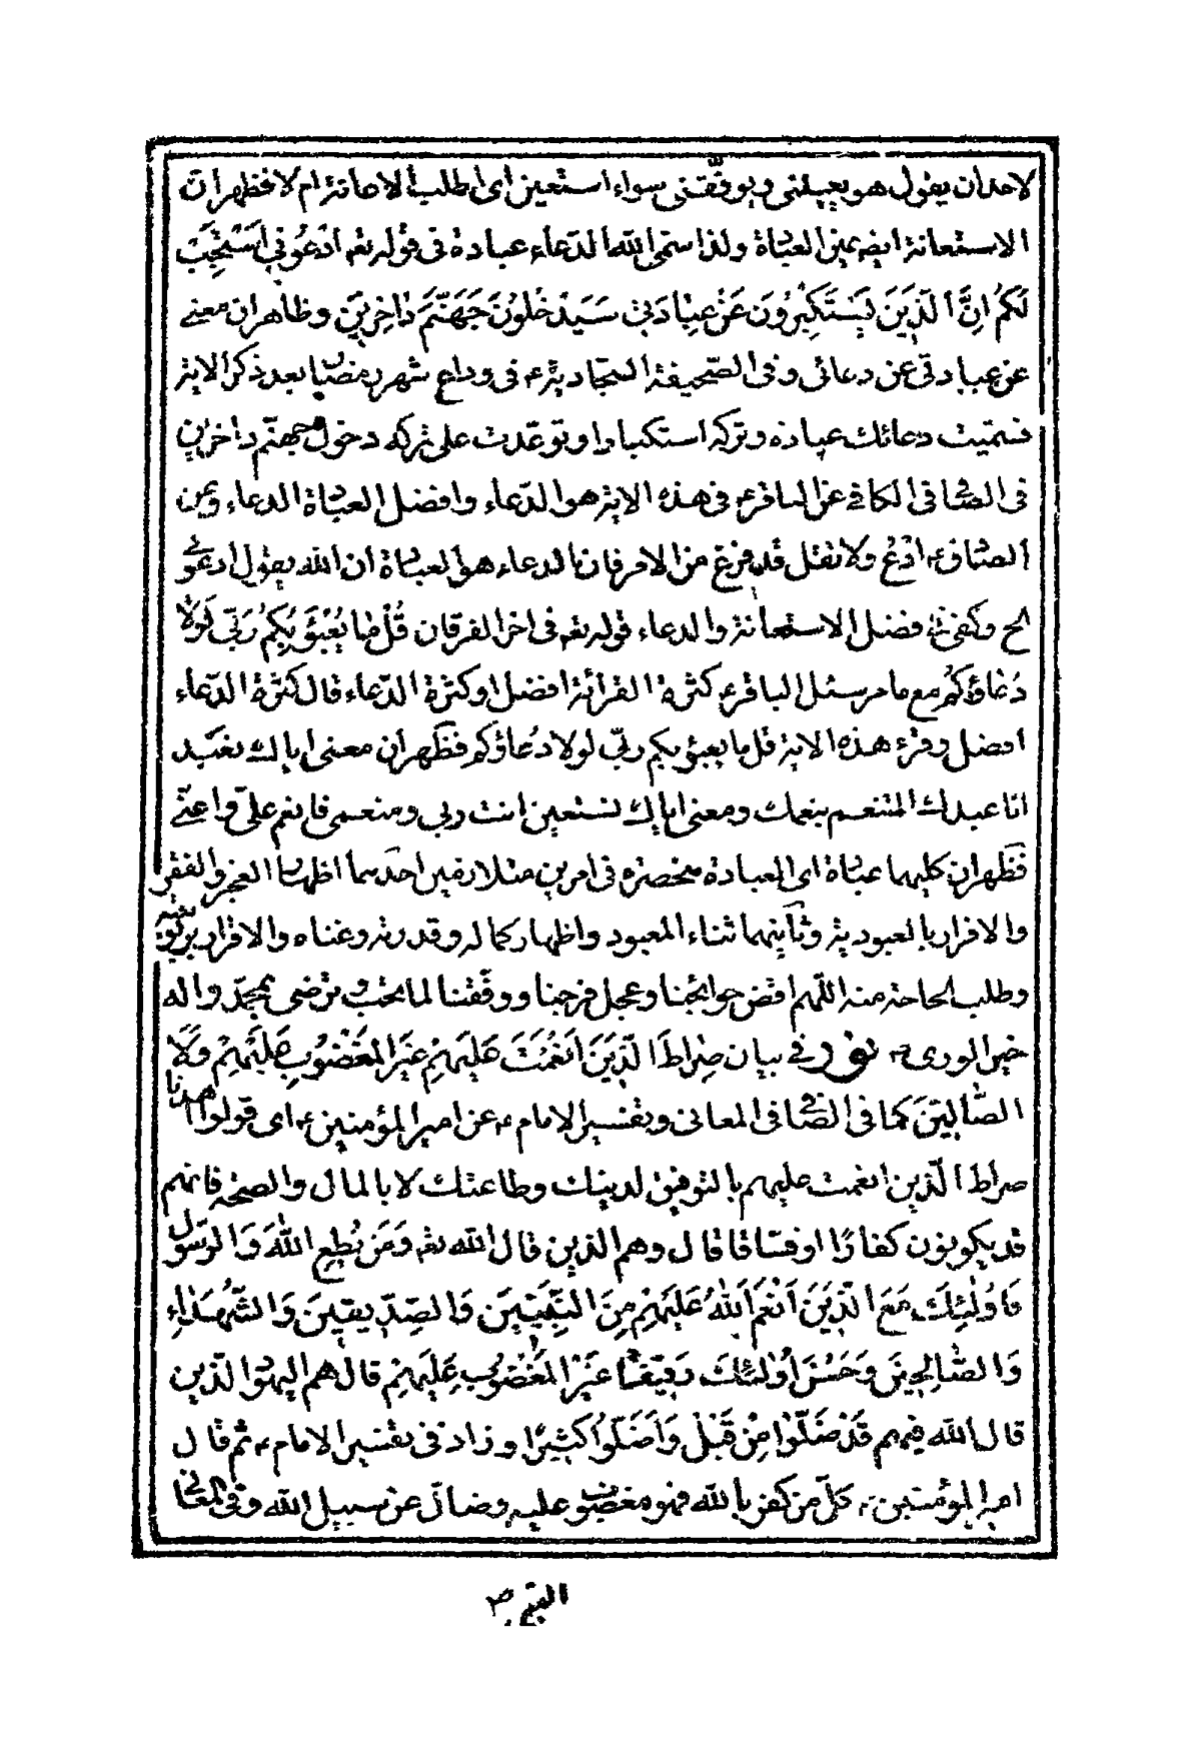 لاحد ان يقول هو يعيننى ويوفّقنى سواء استعين اى اطلب الاعانة ام لا فظهر ان
الاستعانة ايضا عين العبادة ولذا سمّى الله الدّعاء عبادة فى قوله تعم اُدْعُونِي اَسْتَجِبْ
لَكُمْ اِنَّ الَّذِينَ يَسْتَكْبِرُونَ عَنْ عِبٰادَتِى سَيَدْخُلُونَ جَهَنَّمَ دٰاخِرِينَ وظاهر ان معنى
عن عبادتى عن دعائى وفى الصّحيفة السّجادية ع فى وداع شهر رمضان بعد ذكر الاية
فسمّيت دعائك عبادة وتركه استكبارا وتوعّدت على تركه دخول جهنّم داخرين
فى الصّافى الكافى عن الباقر ع فى هذه الاية هو الدّعاء وافضل العبادة الدعاء وعن
الصّادق ع اُدْعُ ولا تقل قد فرغ من الامر فان الدعاء هو العبادة ان الله يقول ادعونى
الخ وكفى فى فضل الاستعانة والدعاء قوله تعم فى اخر الفرقان قُلْ مٰا يَعْبَؤُ بِكُمْ رَبّى لَوْلٰا
دُعٰاؤُكُمْ مع ما مر سئل الباقر ع كثرة القرائة افضل او كثرة الدّعاء قال كثرة الدّعاء
افضل وقرء هذه الاية قل ما يعبؤ بكم ربّى لولا دُعاؤكم فظهر ان معنى اياك نعبد
انا عبدك المتنعم بنعمك ومعنى اياك نستعين انت ربى ومنعمى فانعم علىّ واعنّى
فظهر ان كليهما عبادة اى العبادة منحصرة فى امرين متلازمين احدهما اظهار العجز والفقر
والاقرار بالعبودية وثانيهما ثناء المعبود واظهار كماله وقدرته وغناه والاقرار بربوبيته
وطلب الحاجة منه اللّهم اقض حوائجنا وعجل فرجنا ووفّقنا لما تحبّ وترضى بمحمّد واله
خير الورى نور فى بيان صِرٰاطَ الَّذِينَ اَنْعَمْتَ عَلَيْهِمْ غَيْرِ الْمَغْضُوبِ عَلَيْهِمْ وَلَا
الضّٰالِّينَ كما فى الصّافى المعانى وتفسير الامام ع عن امير المؤمنين ع اى قولوا اهدنا
صراط الّذين انعمت عليهم بالتوفيق لدينك وطاعتك لا بالمال والصحّة فانهم
قد يكونون كفارًا او فسّاقا قال وهم الذين قال الله تعم وَمَنْ يُطِعِ اللهَ وَالرَّسُولَ
فَاُولٰئِكَ مَعَ الَّذِينَ اَنْعَمَ اللهُ عَلَيْهِمْ مِنَ النَّبِيّينَ وَالصِّدّيقينَ وَالشُّهَدٰاءِ
وَالصّٰالِحينَ وَحَسُنَ اُولٰئِكَ رَفيقًا غَيْرِ الْمَغْضُوبِ عَلَيْهِمْ قال هم اليهود الّذين
قال الله فيهم قَدْ ضَلُّوا مِنْ قَبْلُ وَاَضَلُّوا كَثيرًا وزاد فى تفسير الامام ع ثم قال
امير المؤمنين ع كلّ من كفر بالله فهو مغضوب عليه وضالّ عن سبيل الله وفى المعانى